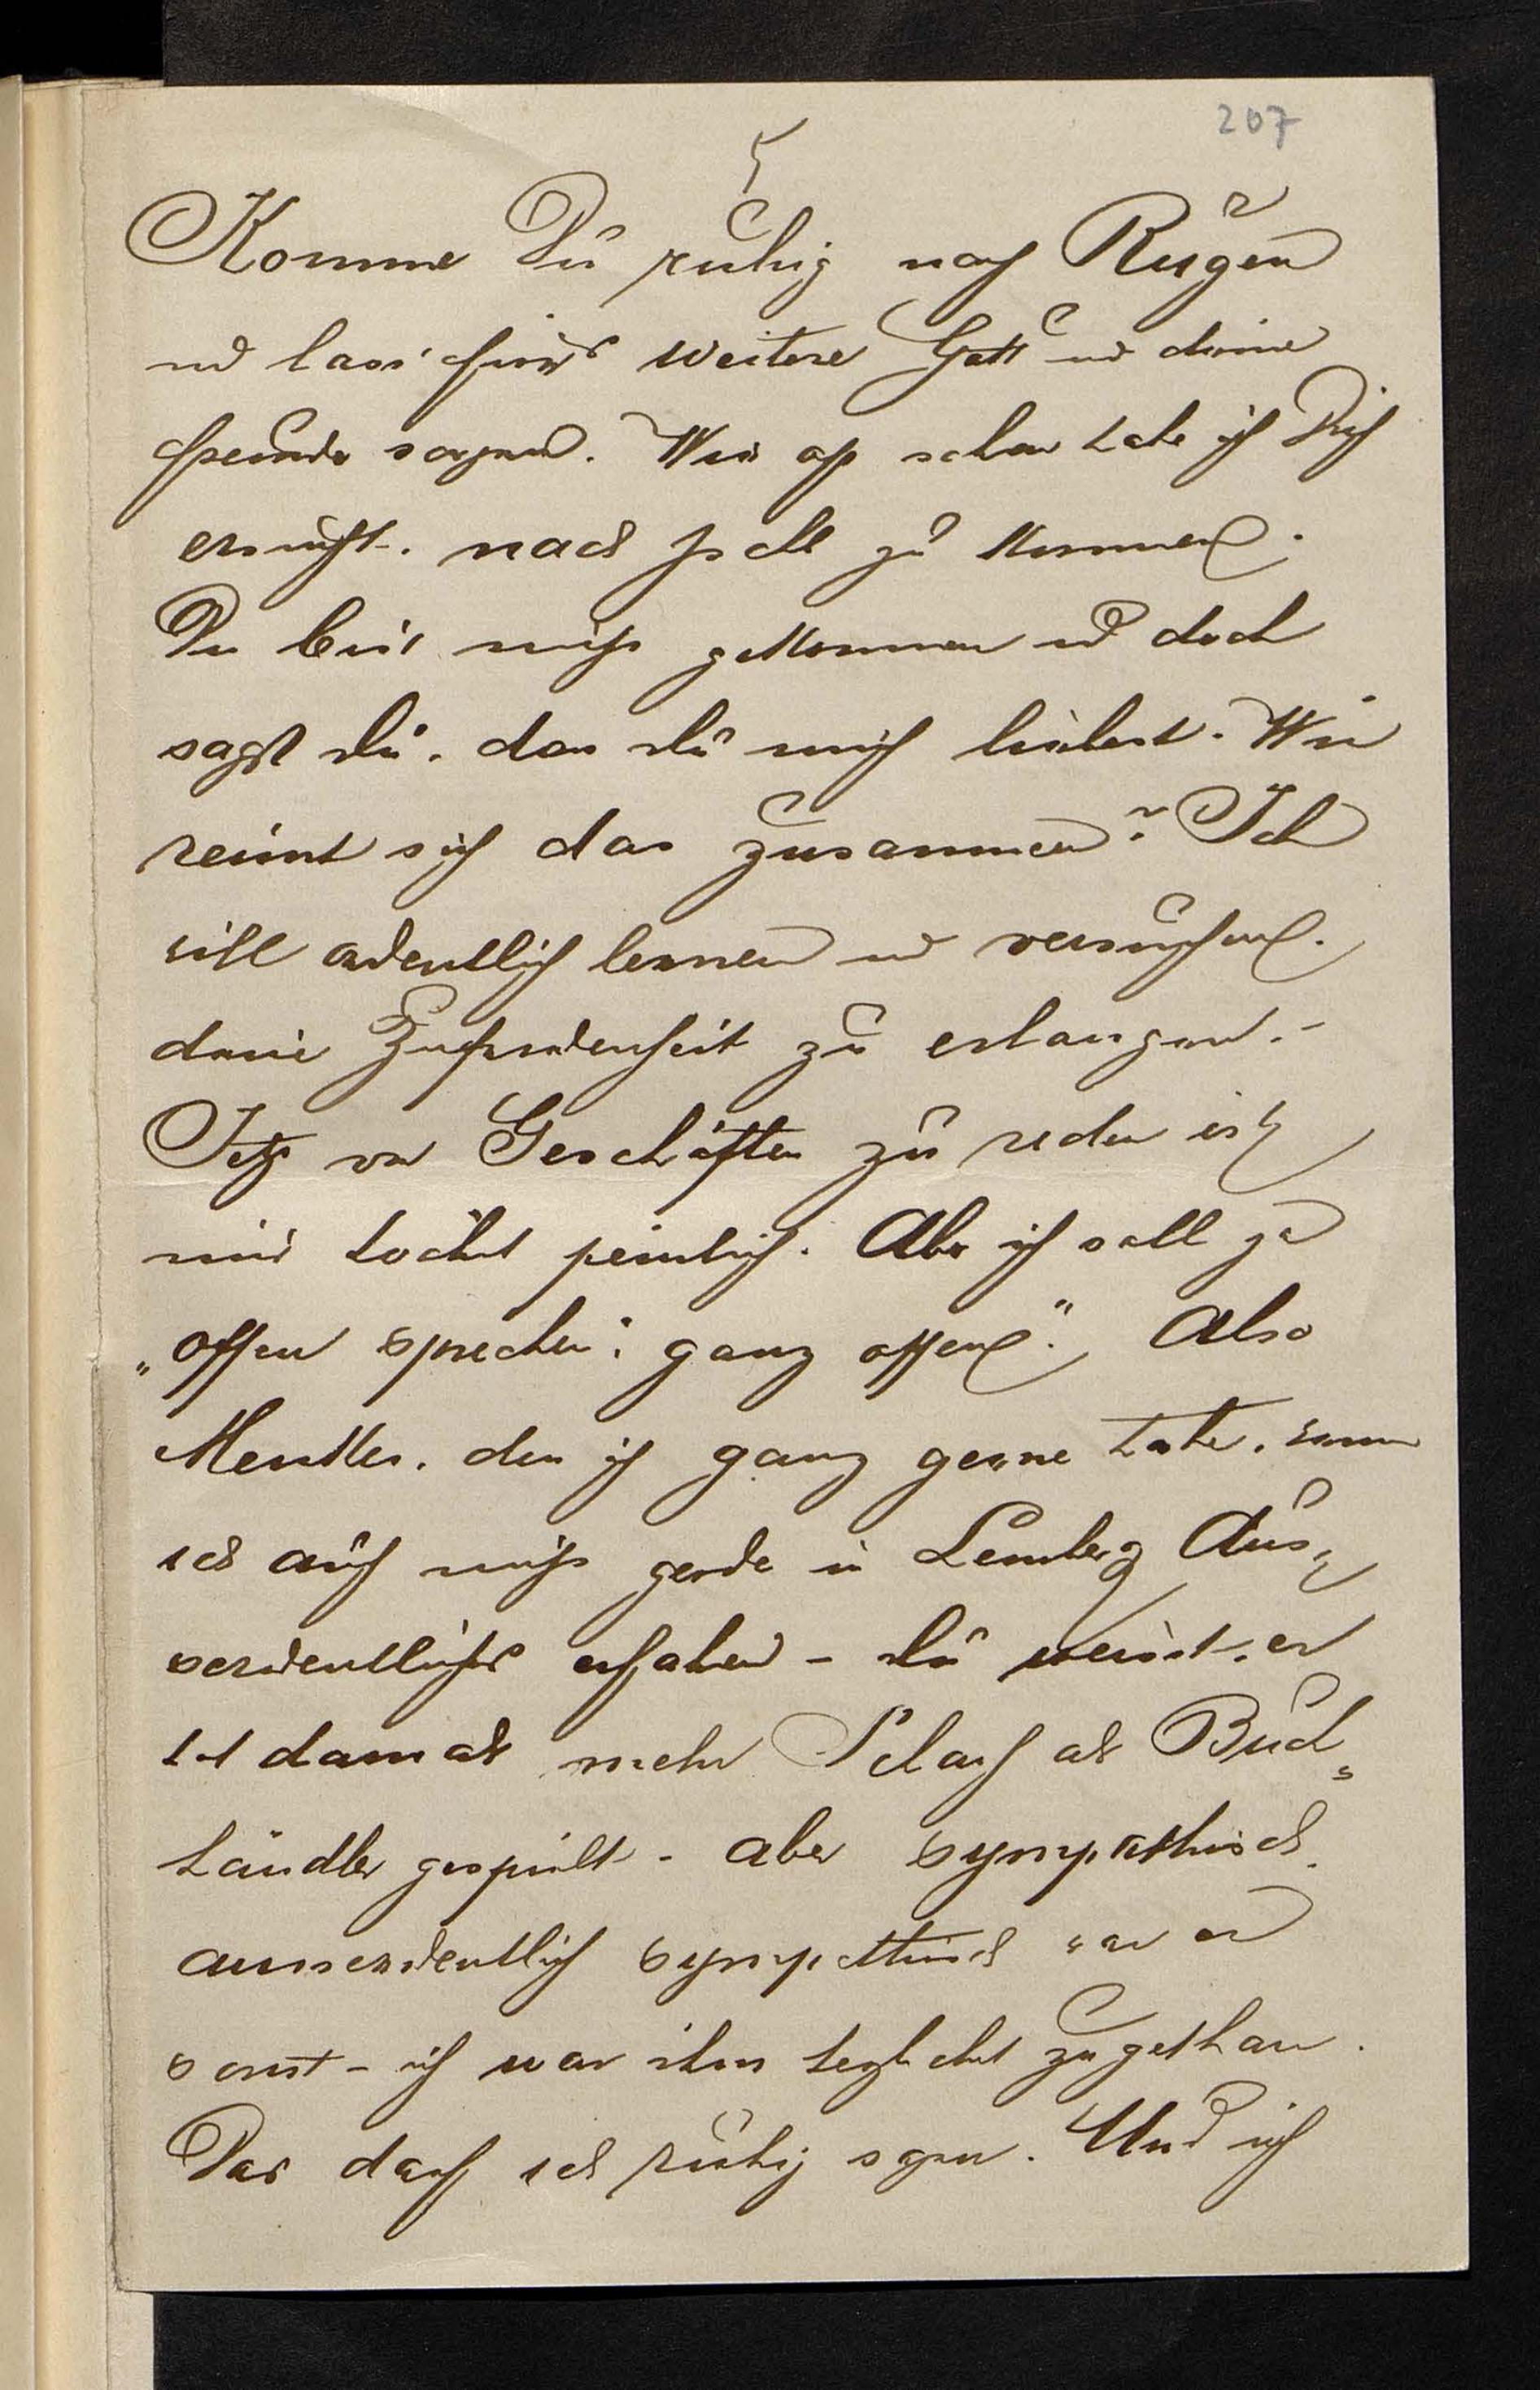 207
5
Komme Du ruhig nach Rügen
und lass fürs weitere Gott und deine
Freunde sorgen. Wie oft schon habe ich Dich
ersucht, nach zu kommen.
Du bist nicht gekommen und doch
sagst du, das du mich liebest. Wie
reimt sich das zusammen? Ich
will ordentlich lernen und versuchen,
deine Zufriedenheit zu erlangen. -
Jetzt von Geschäften zu reden ist
mir höchst peinlich. Aber ich soll ja
„offen sprechen, ganz offen". Also
den ich ganz gerne habe, wenn
ich auch nicht gerade in Lemberg Aus„
serordentliches erfahren - du weisst, er
hat damals mehr als Buch„
händler gespielt - aber sympathisch,
ausserordentlich sympathisch war er
sonst - ich war ihm zugethan.
Das darf ich ruhig sagen. Und ich